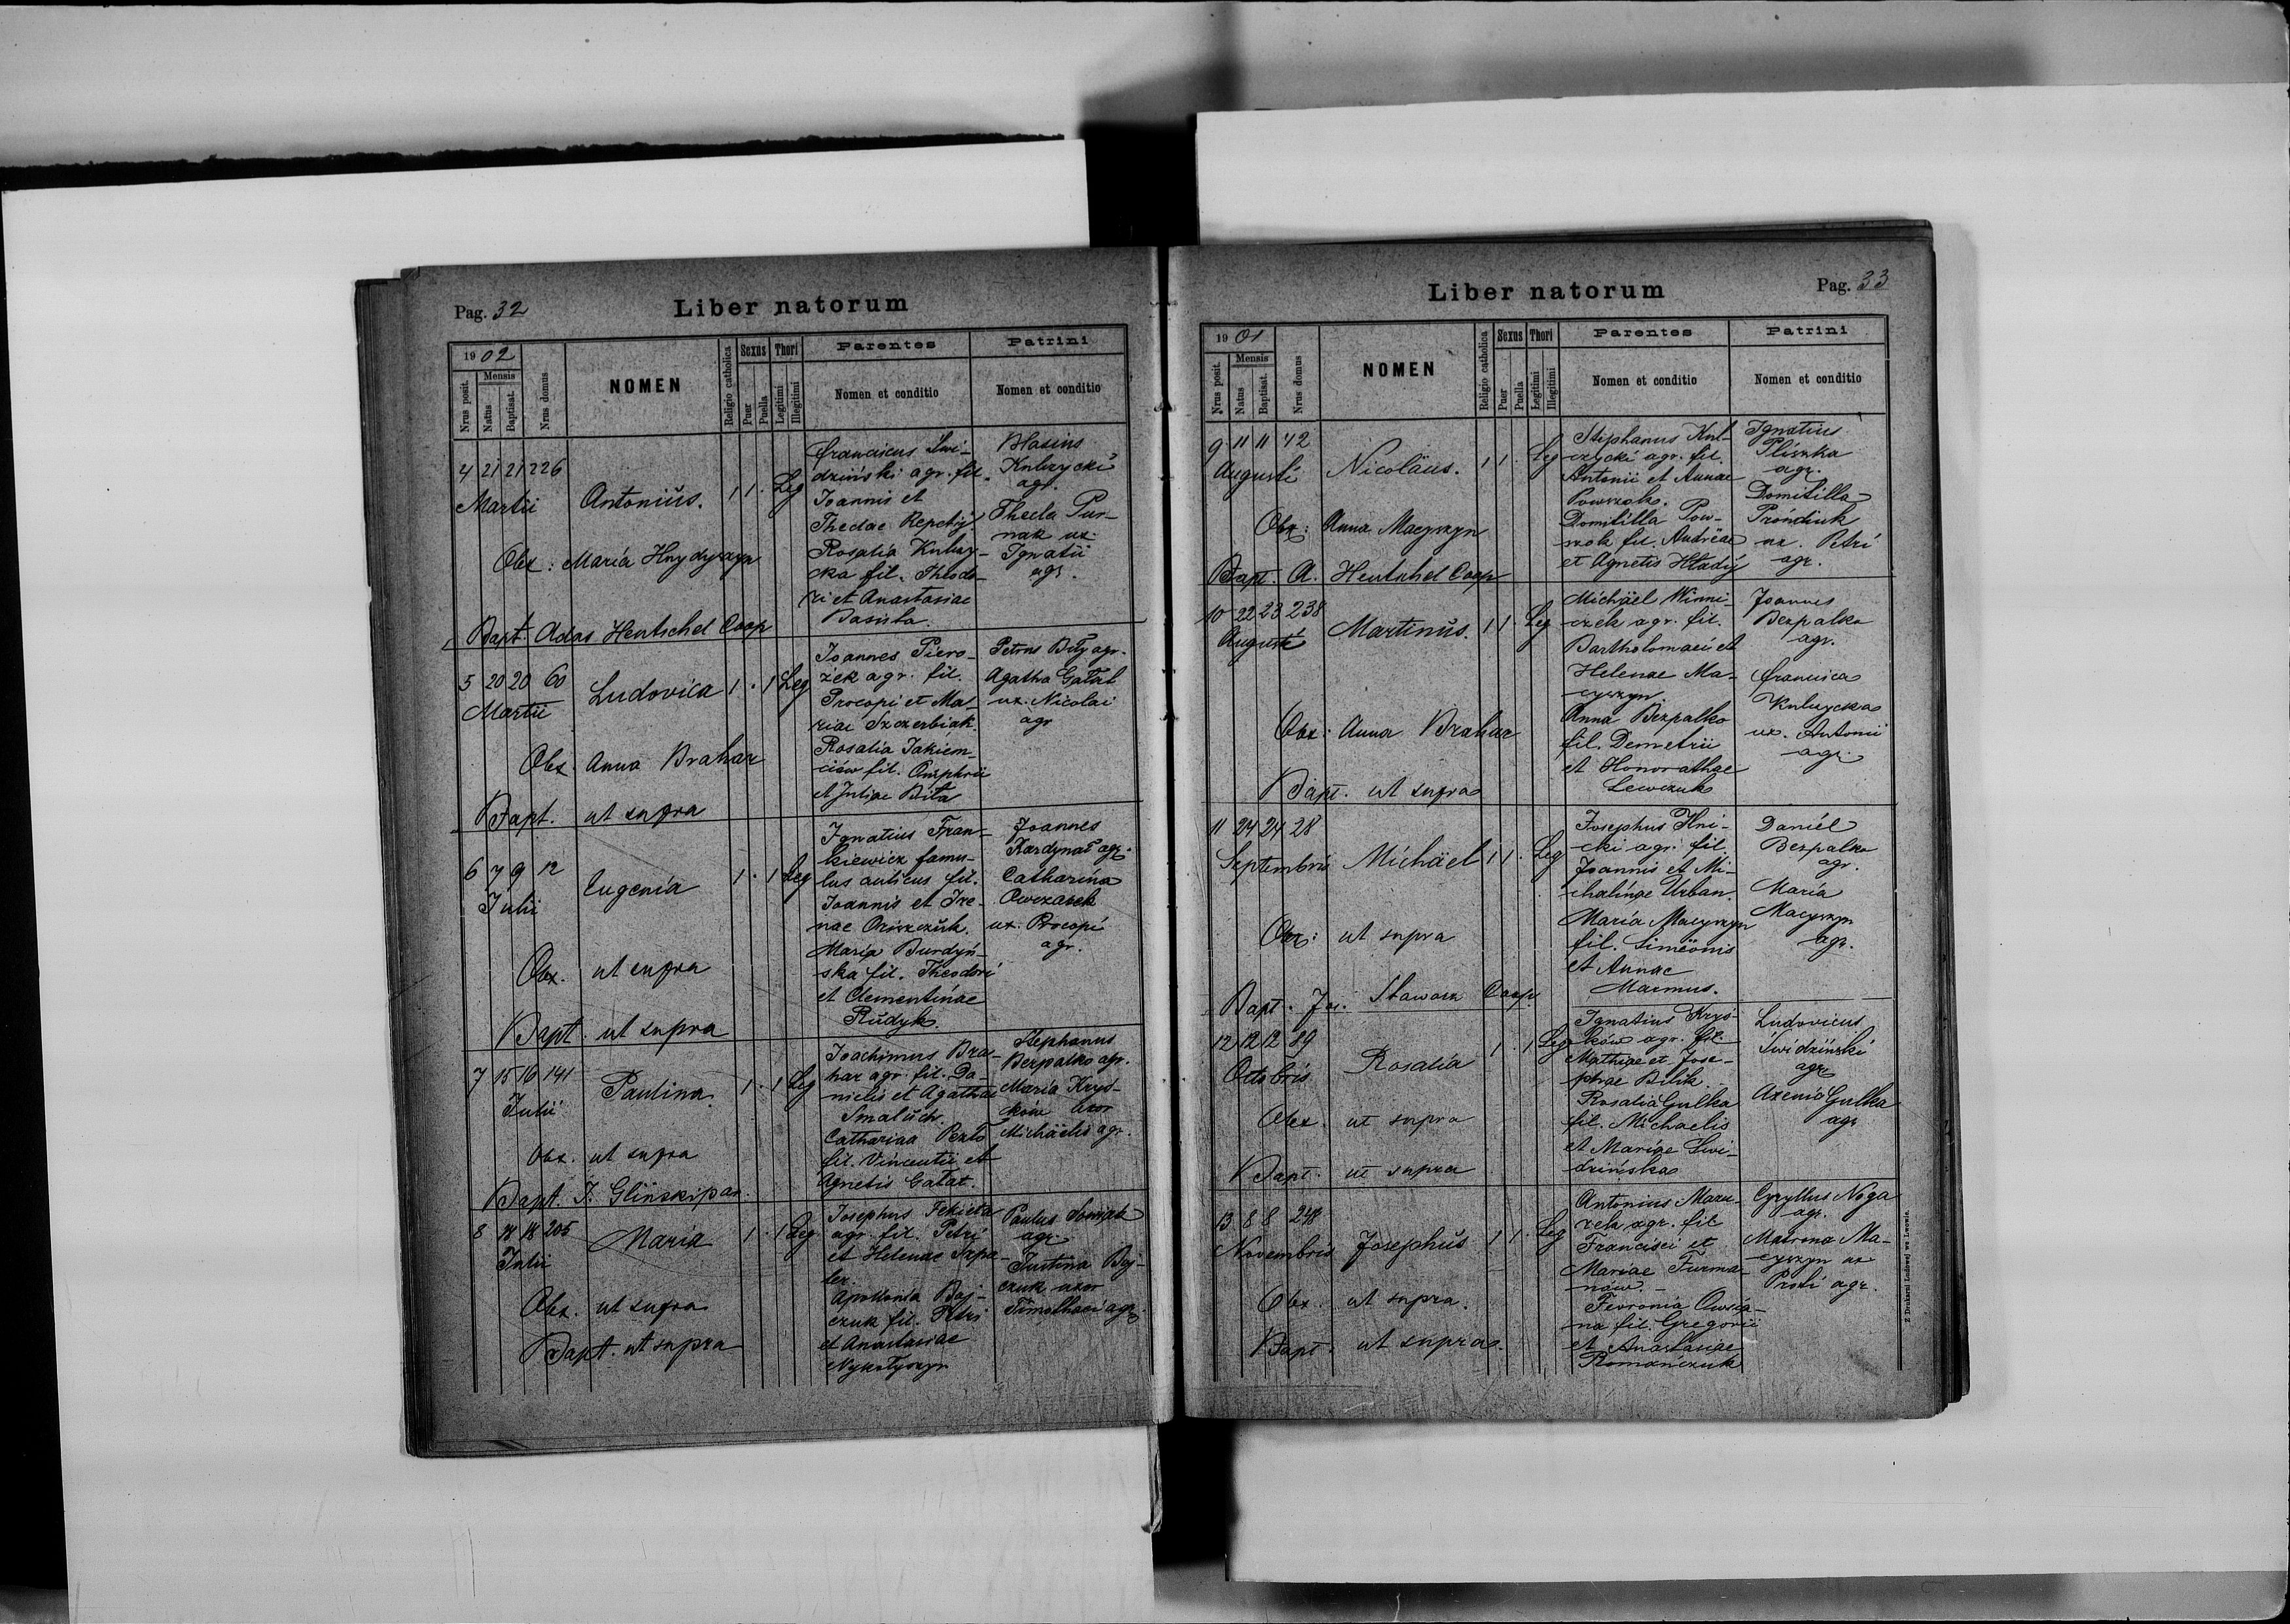 Pag. 32
Liber natorum
1902
Nrus posit.
Mensis
Natus
Baptisat.
Nrus domus
NOMEN
Religio catholica
Sexus
Puer
Puella
Thori
Legitimi
Illegitimi
Parentes
Nomen et conditio
Patrini
Nomen et conditio
4 21 21 226
Martii
Antonius.
1 1 . Leg
Obx: Maria Hnydyszyn
Bapt. Adas Hentschel Coop
Franciscus Swi-
dziński agr. fil.
Joannis et
Theclae Repchij
Rosalia Kulczy-
cka fil. Theodo-
ri et Anastasiae
Basista.
Blasius
Kulczycki
agr.
Thecla Pur-
nak ux.
Ignatii
agr.
5 20 20 60
Martii
Ludovica
1 . 1 Leg
Obx Anna Brahar
Bapt. ut supra
Joannes Piero-
żek agr. fil.
Procopi et Ma-
riae Szczerbiak.
Rosalia Jakiem-
ciów fil. Onuphrii
et Juliae Biła
Petrus Biły agr.
Agatha Gałat
ux. Nicolai
agr
6 7 9 12
Julii
Eugenia
1 . 1 Leg
Obx. ut supra
Bapt. ut supra
Ignatius Fran-
kiewicz famu-
lus aulicus fil.
Joannis et Ire-
nae Oriszczuk.
Maria Burdyń-
ska fil. Theodori
et Clementinae
Rudyk.
Joannes
Kardynał agr.
Catharina
Owczarek
ux. Procopi
agr.
7 15 16 141
Julii
Paulina
1 . 1 Leg
Obx. ut supra
Bapt. J. Gliński par.
Joachimus Bra-
har agr. fil. Da-
nielis et Agathae
Smaluch.
Catharina
fil. Vincentii et
Agnetis Gałat.
Stephanus
Bezpalko agr.
Maria Krys-
ków uxor
Michäelis agr.
8 18 18 205
Julii
Maria
1 . 1 Leg
Obx. ut supra
Bapt. ut supra
Josephus Fekieta
agr. fil. Petri
et Helenae Szpa-
ler.
Apollonia Boj-
czuk fil. Petri
et Anastasiae
Nykołyszyn
Paulus
agr.
Justina Boj-
czuk uxor
Timothaei agr.
Liber natorum
Pag. 33
1901
Nrus posit.
Mensis
Natus
Baptisat.
Nrus domus
NOMEN
Religio catholica
Sexus
Puer
Puella
Thori
Legitimi
Illegitimi
Parentes
Nomen et conditio
Patrini
Nomen et conditio
9 11 11 42
Augusti
Nicoläus.
1 1 . Leg
Obx: Anna Macyszyn
Bapt. A. Hentschel Coop
Stephanus Kul-
czycki agr. fil.
Antonii et Annae
Powszok.
Domitilla Pow-
szok fil. Andreae
et Agnetis Hładij
Ignatius
Pliszka
agr.
Domitilla
Prońdiuk
ux. Petri
agr.
10 22 23 238
Augusti
Martinus.
1 1 Leg
Obx: Anna Brahar
Bapt. ut supra
Michäel Winni-
czek agr. fil.
Bartholomaei et
Helenae Ma-
cyszyn
Anna Bezpalko
fil. Demetrii
et Honorathae
Lewczuk
Joannes
Bezpalko
agr.
Francisca
Kulczycka
ux. Antonii
agr.
11 24 24 28
Septembris
Michäel
1 1 . Leg
Obx: ut supra
Bapt. Jos. Stawarz Coop.
Josephus Hni-
cki agr. fil.
Joannis et Mi-
chalinae Urban.
Maria Macyszyn
fil. Simëonis
et Annae
Marmus.
Daniël
Bezpalko
agr.
Maria
Macyszyn
agr.
12 12 12 89
Octobris
Rosalia
1 . 1 Leg
Obx. ut supra
Bapt. ut supra
Ignatius Krys-
ków agr. fil.
Mathiae et Jose-
phae Bilik.
Rosalia Gulka
fil. Michaelis
et Mariae Swi-
dzińska
Ludovicus
Swidziński
agr.
Axenia Gulka
agr
13 8 8 248
Novembris
Josephus
1 1 . Leg
Obx. ut supra.
Bapt. ut supra.
Antonius Mazu-
rek agr. fil
Francisci et
Mariae Furma-
nów. -
Fevronia Owsia-
na fil. Gregorii
et Anastasiae
Romańczuk
Cyryllus Noga
agr.
Matrona Ma-
cyszyn ux
Proti agr.
Z Drukarni Ludowej we Lwowie.